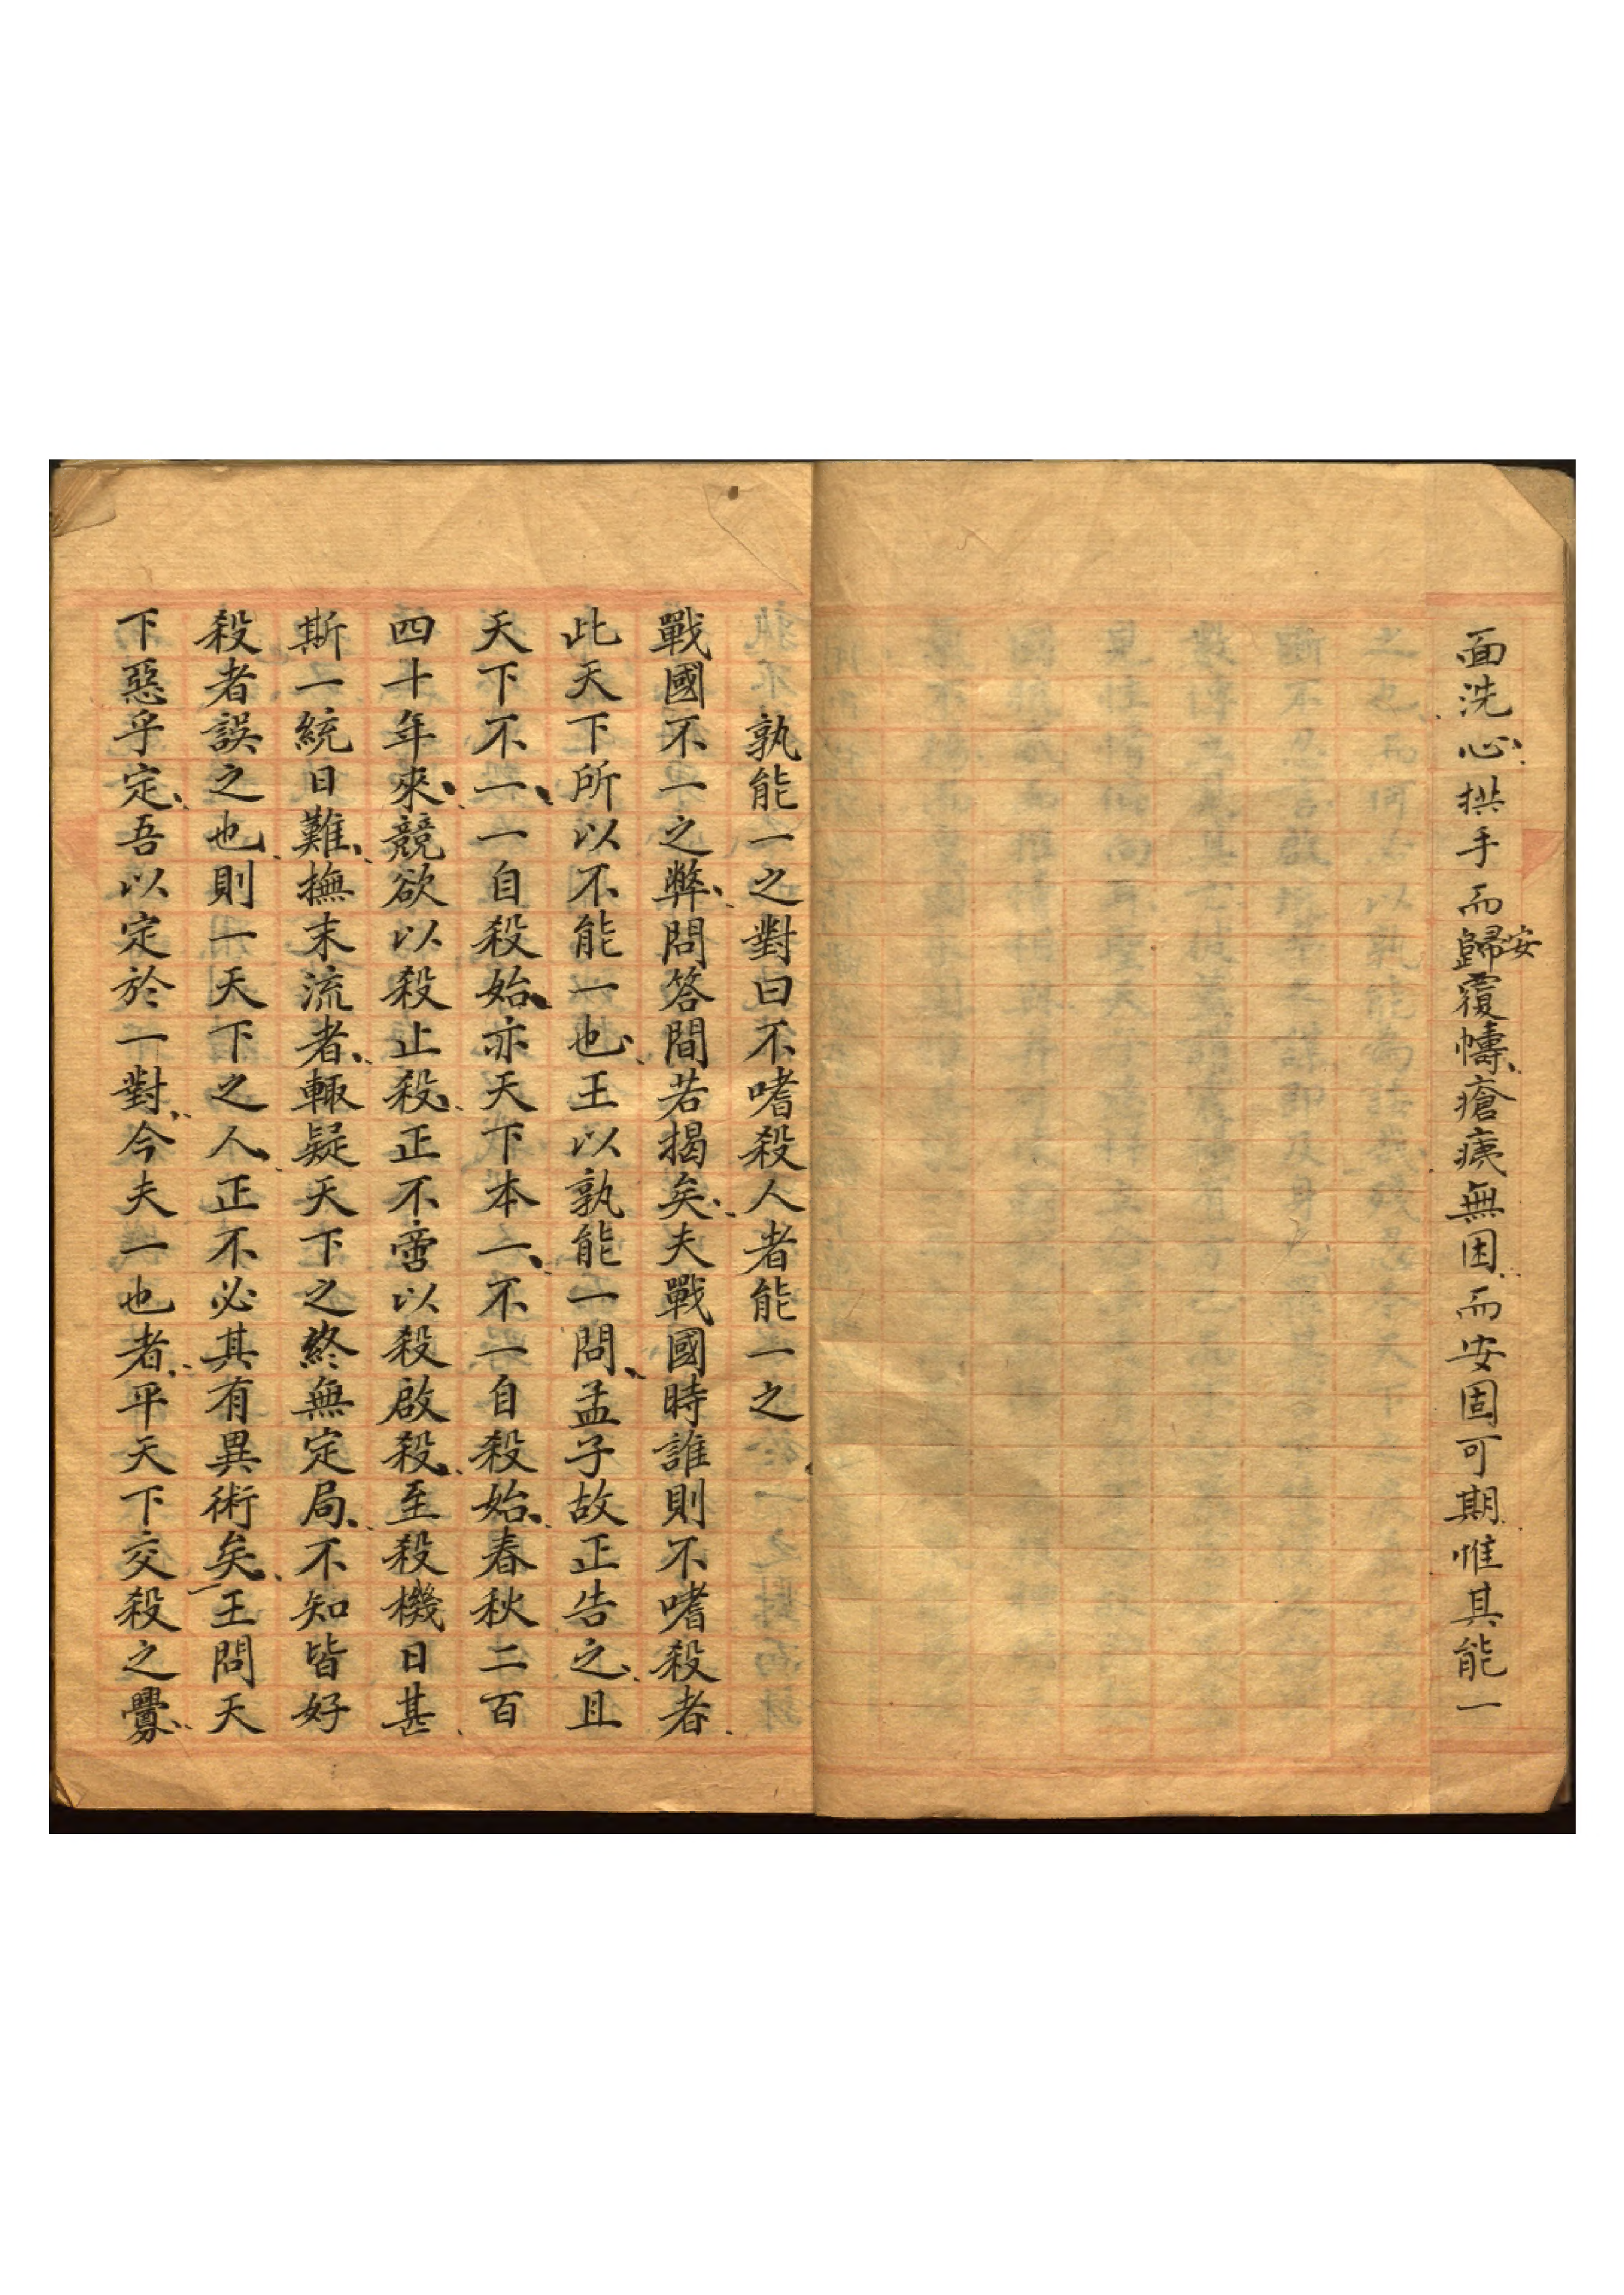 面洗心拱手而歸安覆幬瘡痍無困而安固可期惟其能一
孰能一之對曰不嗜殺人者能一之
戰國不一之弊問答間若揭矣夫戰國時誰則不嗜殺者
此天下所以不能一也王以孰能一問孟子故正告之且
天下不一一自殺始亦天下本一不一自殺始春秋二百
四十年來競欲以殺止殺正不啻以殺啟殺至殺機日甚
斯一統日難撫末流者輙疑天下之終無定局不知皆好
殺者誤之也則一天下之人正不必其有異術矣王問天
下惡乎定吾以定於一對今夫一也者平天下交殺之釁